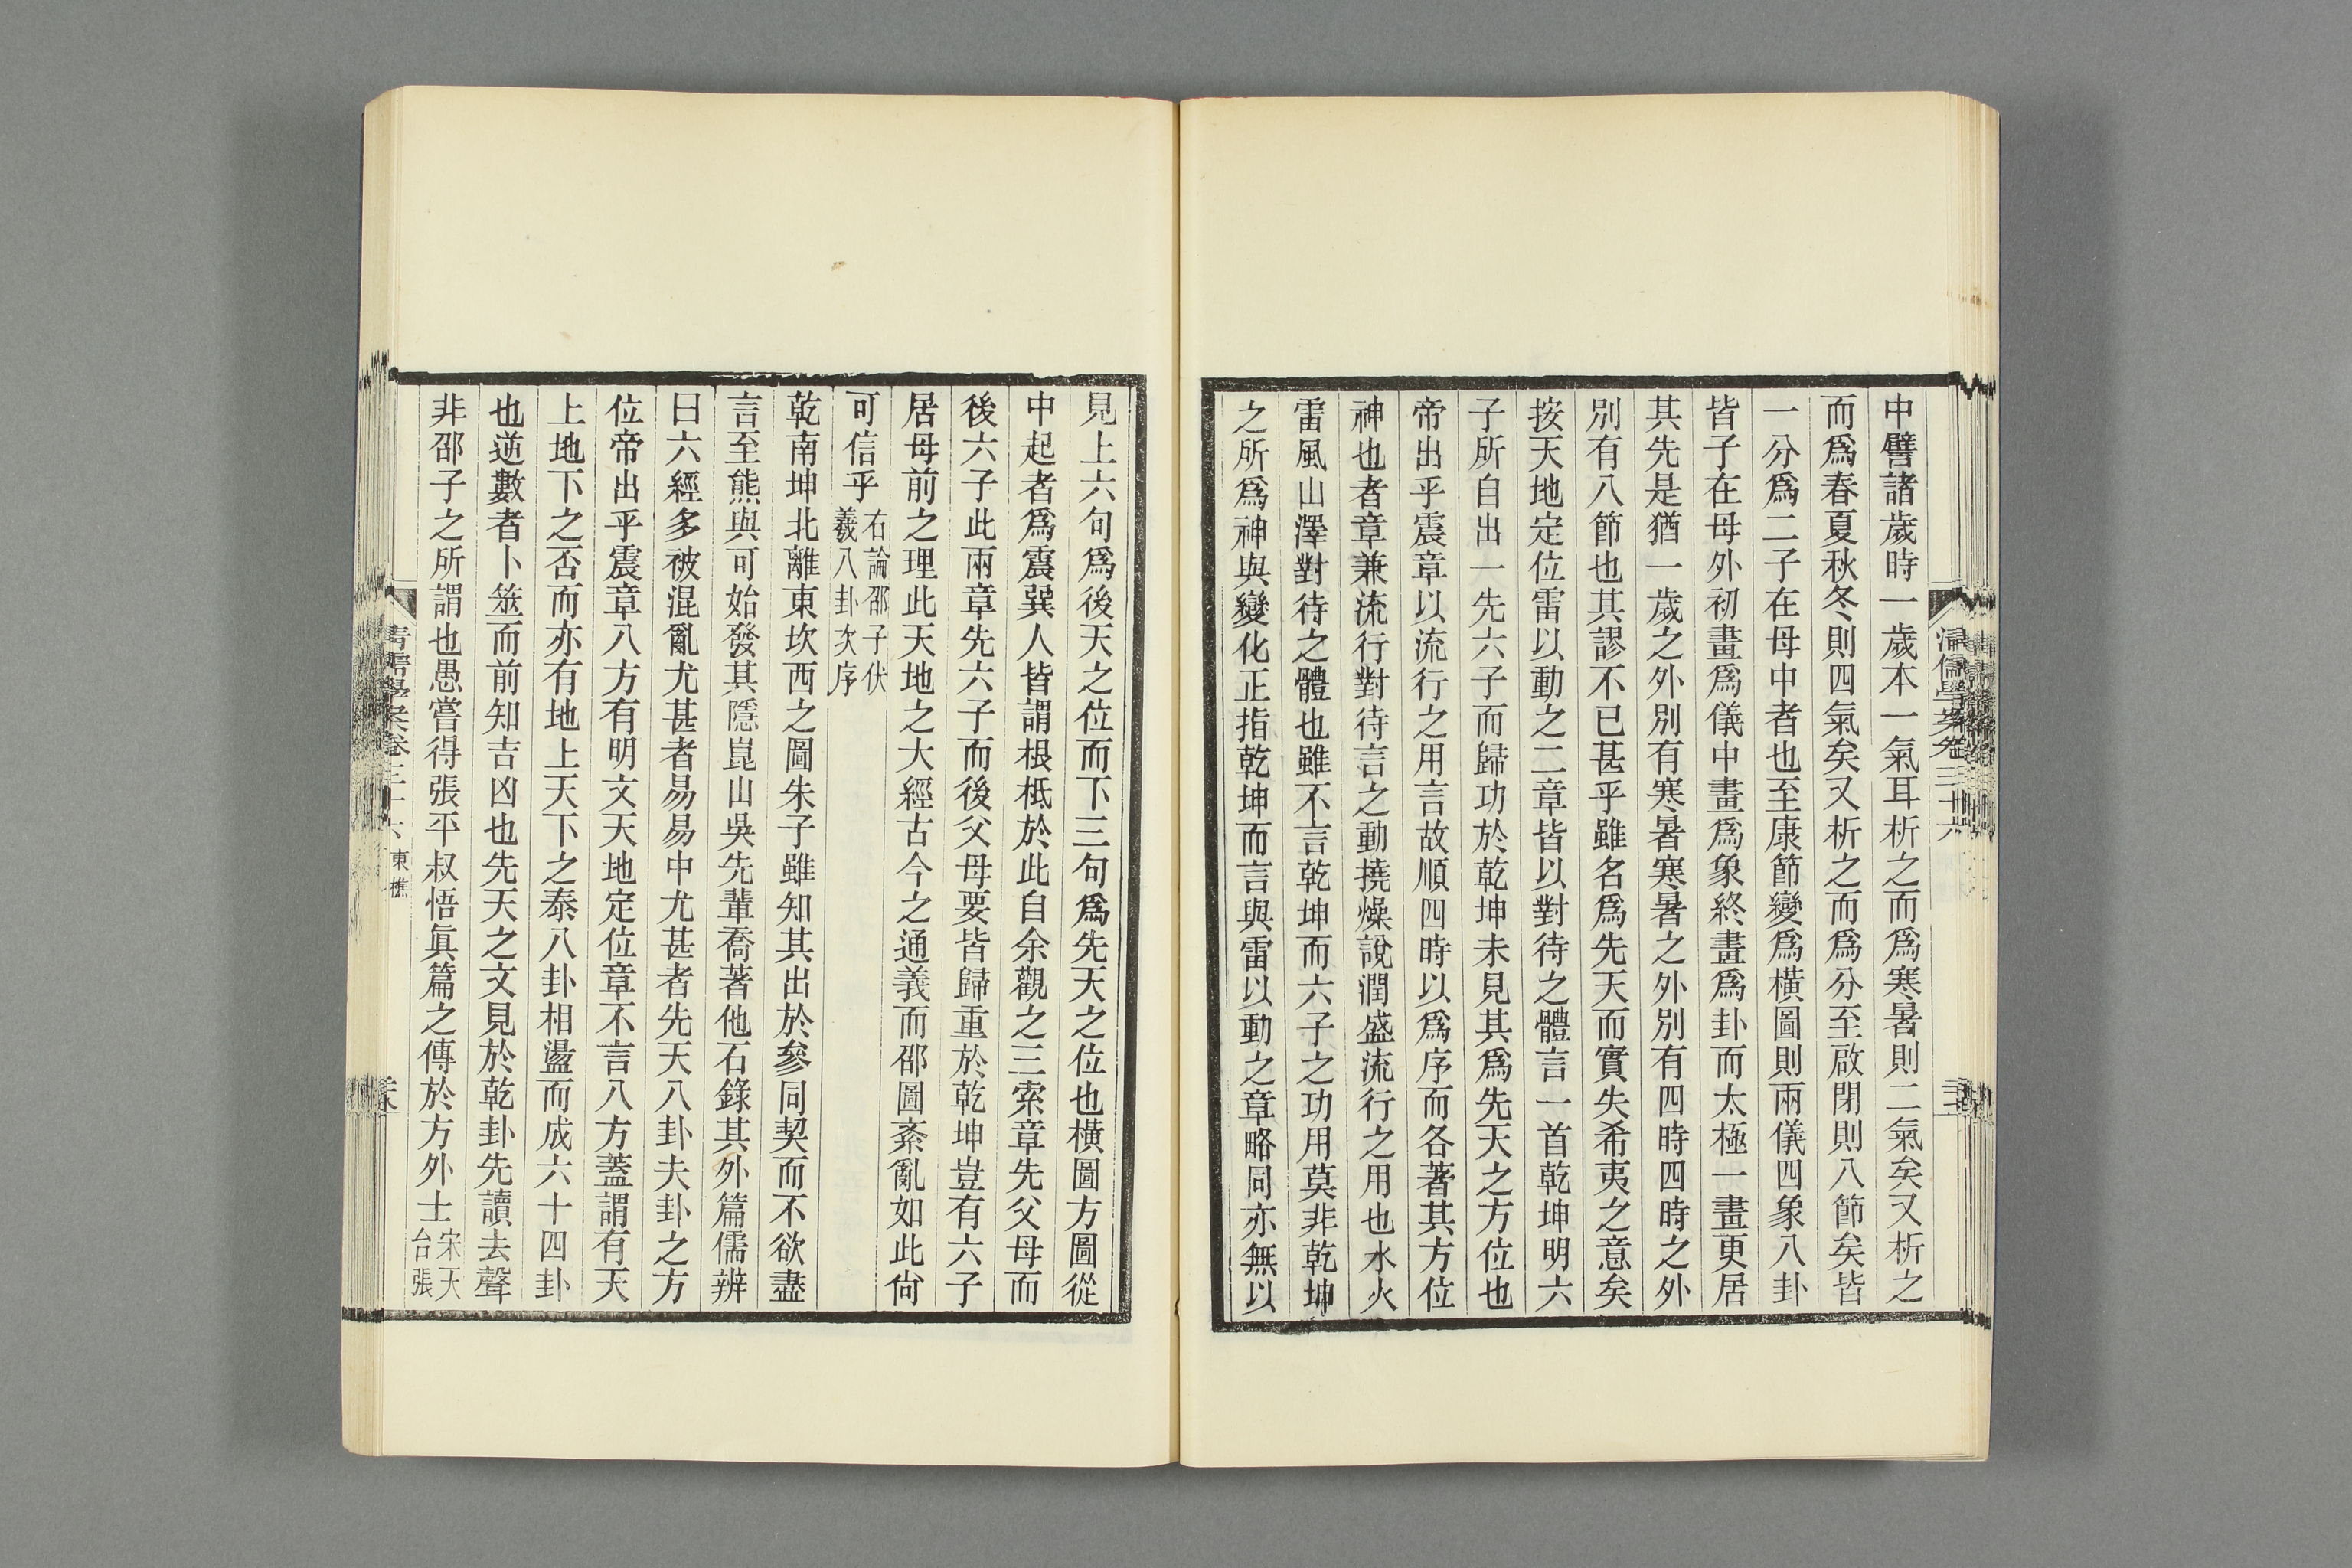 中譬諸歲時一歲本一氣耳析之而爲寒暑則二氣矣又析之
而爲春夏秋冬則四氣矣又析之而爲分至啟閉則八節矣皆
一分爲二子在母中者也至康節變爲橫圖則兩儀四象八卦
皆子在母外初畫爲儀中畫爲象終畫爲卦而太極一畫更居
其先是猶一歲之外別有寒暑寒暑之外別有四時四時之外
別有八節也其謬不已甚乎雖名爲先天而實失希夷之意矣
按天地定位雷以動之二章皆以對待之體言一首乾坤明六
子所自出一先六子而歸功於乾坤未見其爲先天之方位也
帝出乎震章以流行之用言故順四時以爲序而各著其方位
神也者章兼流行對待言之動撓燥說潤盛流行之用也水火
雷風山澤對待之體也雖不言乾坤而六子之功用莫非乾坤
之所爲神與變化正指乾坤而言與雷以動之章略同亦無以
見上六句爲後天之位而下三句爲先天之位也橫圖方圖從
中起者爲震巽人皆謂根柢於此自余觀之三索章先父母而
後六子此兩章先六子而後父母要皆歸重於乾坤豈有六子
居母前之理此天地之大經古今之通義而邵圖紊亂如此尙
可信乎右論邵子伏羲八卦次序
乾南坤北離東坎西之圖朱子雖知其出於參同契而不欲盡
言至熊與可始發其隱崑山吳先輩喬著他石錄其外篇儒辨
曰六經多被混亂尤甚者易易中尤甚者先天八卦夫卦之方
位帝出乎震章八方有明文天地定位章不言八方蓋謂有天
上地下之否而亦有地上天下之泰八卦相盪而成六十四卦
也逆數者卜筮而前知吉凶也先天之文見於乾卦先讀去聲
非邵子之所謂也愚嘗得張平叔悟眞篇之傳於方外士宋天台張
清儒學案卷三十六 東樵